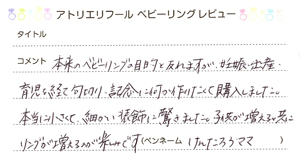 アトリエリフール ベビーリング レビュー
タイトル
コメント 本来のベビーリングの目的と反れますが、妊娠・出産・
育児を経て一句切り、記念に何か作りたくて購入しました。
本当に小さくて、細かい装飾に驚きました。子供が増える毎に
リングが増えるのが楽しみです（ペンネーム けんたろうママ ）